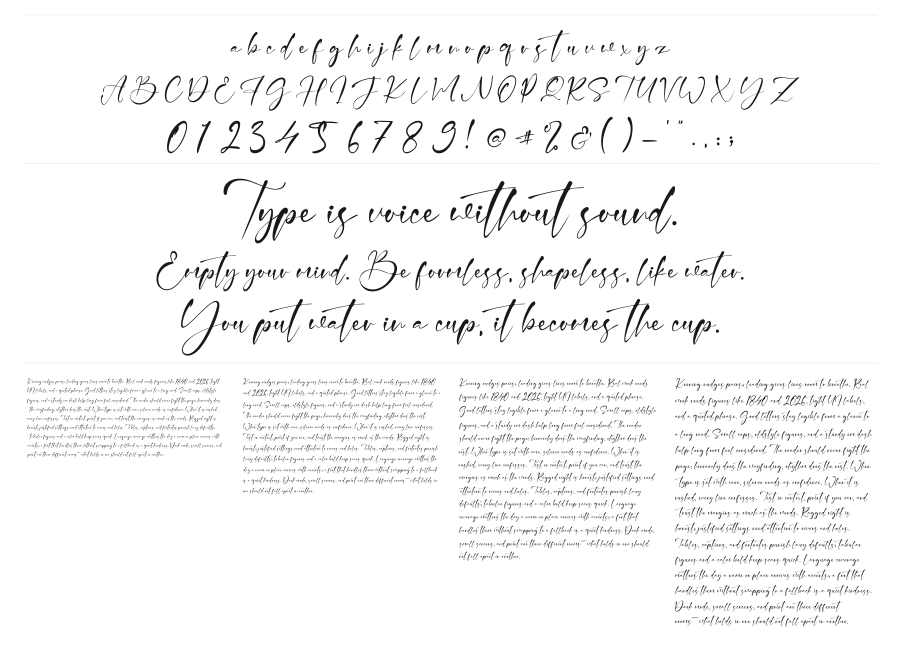 a b c d e f g h i j k l m n o p q r s t u v w x y z
A B C D E F G H I J K L M N O P Q R S T U V W X Y Z
0 1 2 3 4 5 6 7 8 9 ! @ # % & ( ) – ' " . , : ;
Type is voice without sound.
Empty your mind. Be formless, shapeless, like water.
You put water in a cup, it becomes the cup.
Kerning nudges pairs; leading gives lines room to breathe. Real work needs figures like 1840 and 2026, tight
UI labels, and a quoted phrase. Good letters stay legible from a glance to a long read. Small caps, oldstyle
figures, and a sturdy em dash help long form feel considered. The reader should never fight the page; hierarchy does
the wayfinding, rhythm does the rest. When type is set with care, silence reads as confidence. When it is rushed,
every line confesses. Test in context, print if you can, and trust the margins as much as the words. Ragged right is
honest; justified settings need attention to rivers and holes. Tables, captions, and footnotes punish lazy defaults;
tabular figures and a calm bold keep scans quick. Language coverage matters the day a name or place arrives with
accents; a font that handles them without swapping to a fallback is a quiet kindness. Dark mode, small screens, and
print are three different rooms—what holds in one should not fall apart in another.
Kerning nudges pairs; leading gives lines room to breathe. Real work needs figures like 1840
and 2026, tight UI labels, and a quoted phrase. Good letters stay legible from a glance to a
long read. Small caps, oldstyle figures, and a sturdy em dash help long form feel considered.
The reader should never fight the page; hierarchy does the wayfinding, rhythm does the rest.
When type is set with care, silence reads as confidence. When it is rushed, every line confesses.
Test in context, print if you can, and trust the margins as much as the words. Ragged right is
honest; justified settings need attention to rivers and holes. Tables, captions, and footnotes punish
lazy defaults; tabular figures and a calm bold keep scans quick. Language coverage matters the
day a name or place arrives with accents; a font that handles them without swapping to a fallback
is a quiet kindness. Dark mode, small screens, and print are three different rooms—what holds in
one should not fall apart in another.
Kerning nudges pairs; leading gives lines room to breathe. Real work needs
figures like 1840 and 2026, tight UI labels, and a quoted phrase.
Good letters stay legible from a glance to a long read. Small caps, oldstyle
figures, and a sturdy em dash help long form feel considered. The reader
should never fight the page; hierarchy does the wayfinding, rhythm does the
rest. When type is set with care, silence reads as confidence. When it is
rushed, every line confesses. Test in context, print if you can, and trust the
margins as much as the words. Ragged right is honest; justified settings need
attention to rivers and holes. Tables, captions, and footnotes punish lazy
defaults; tabular figures and a calm bold keep scans quick. Language
coverage matters the day a name or place arrives with accents; a font that
handles them without swapping to a fallback is a quiet kindness. Dark mode,
small screens, and print are three different rooms—what holds in one should
not fall apart in another.
Kerning nudges pairs; leading gives lines room to breathe. Real
work needs figures like 1840 and 2026, tight UI labels,
and a quoted phrase. Good letters stay legible from a glance to
a long read. Small caps, oldstyle figures, and a sturdy em dash
help long form feel considered. The reader should never fight the
page; hierarchy does the wayfinding, rhythm does the rest. When
type is set with care, silence reads as confidence. When it is
rushed, every line confesses. Test in context, print if you can, and
trust the margins as much as the words. Ragged right is
honest; justified settings need attention to rivers and holes.
Tables, captions, and footnotes punish lazy defaults; tabular
figures and a calm bold keep scans quick. Language coverage
matters the day a name or place arrives with accents; a font that
handles them without swapping to a fallback is a quiet kindness.
Dark mode, small screens, and print are three different
rooms—what holds in one should not fall apart in another.